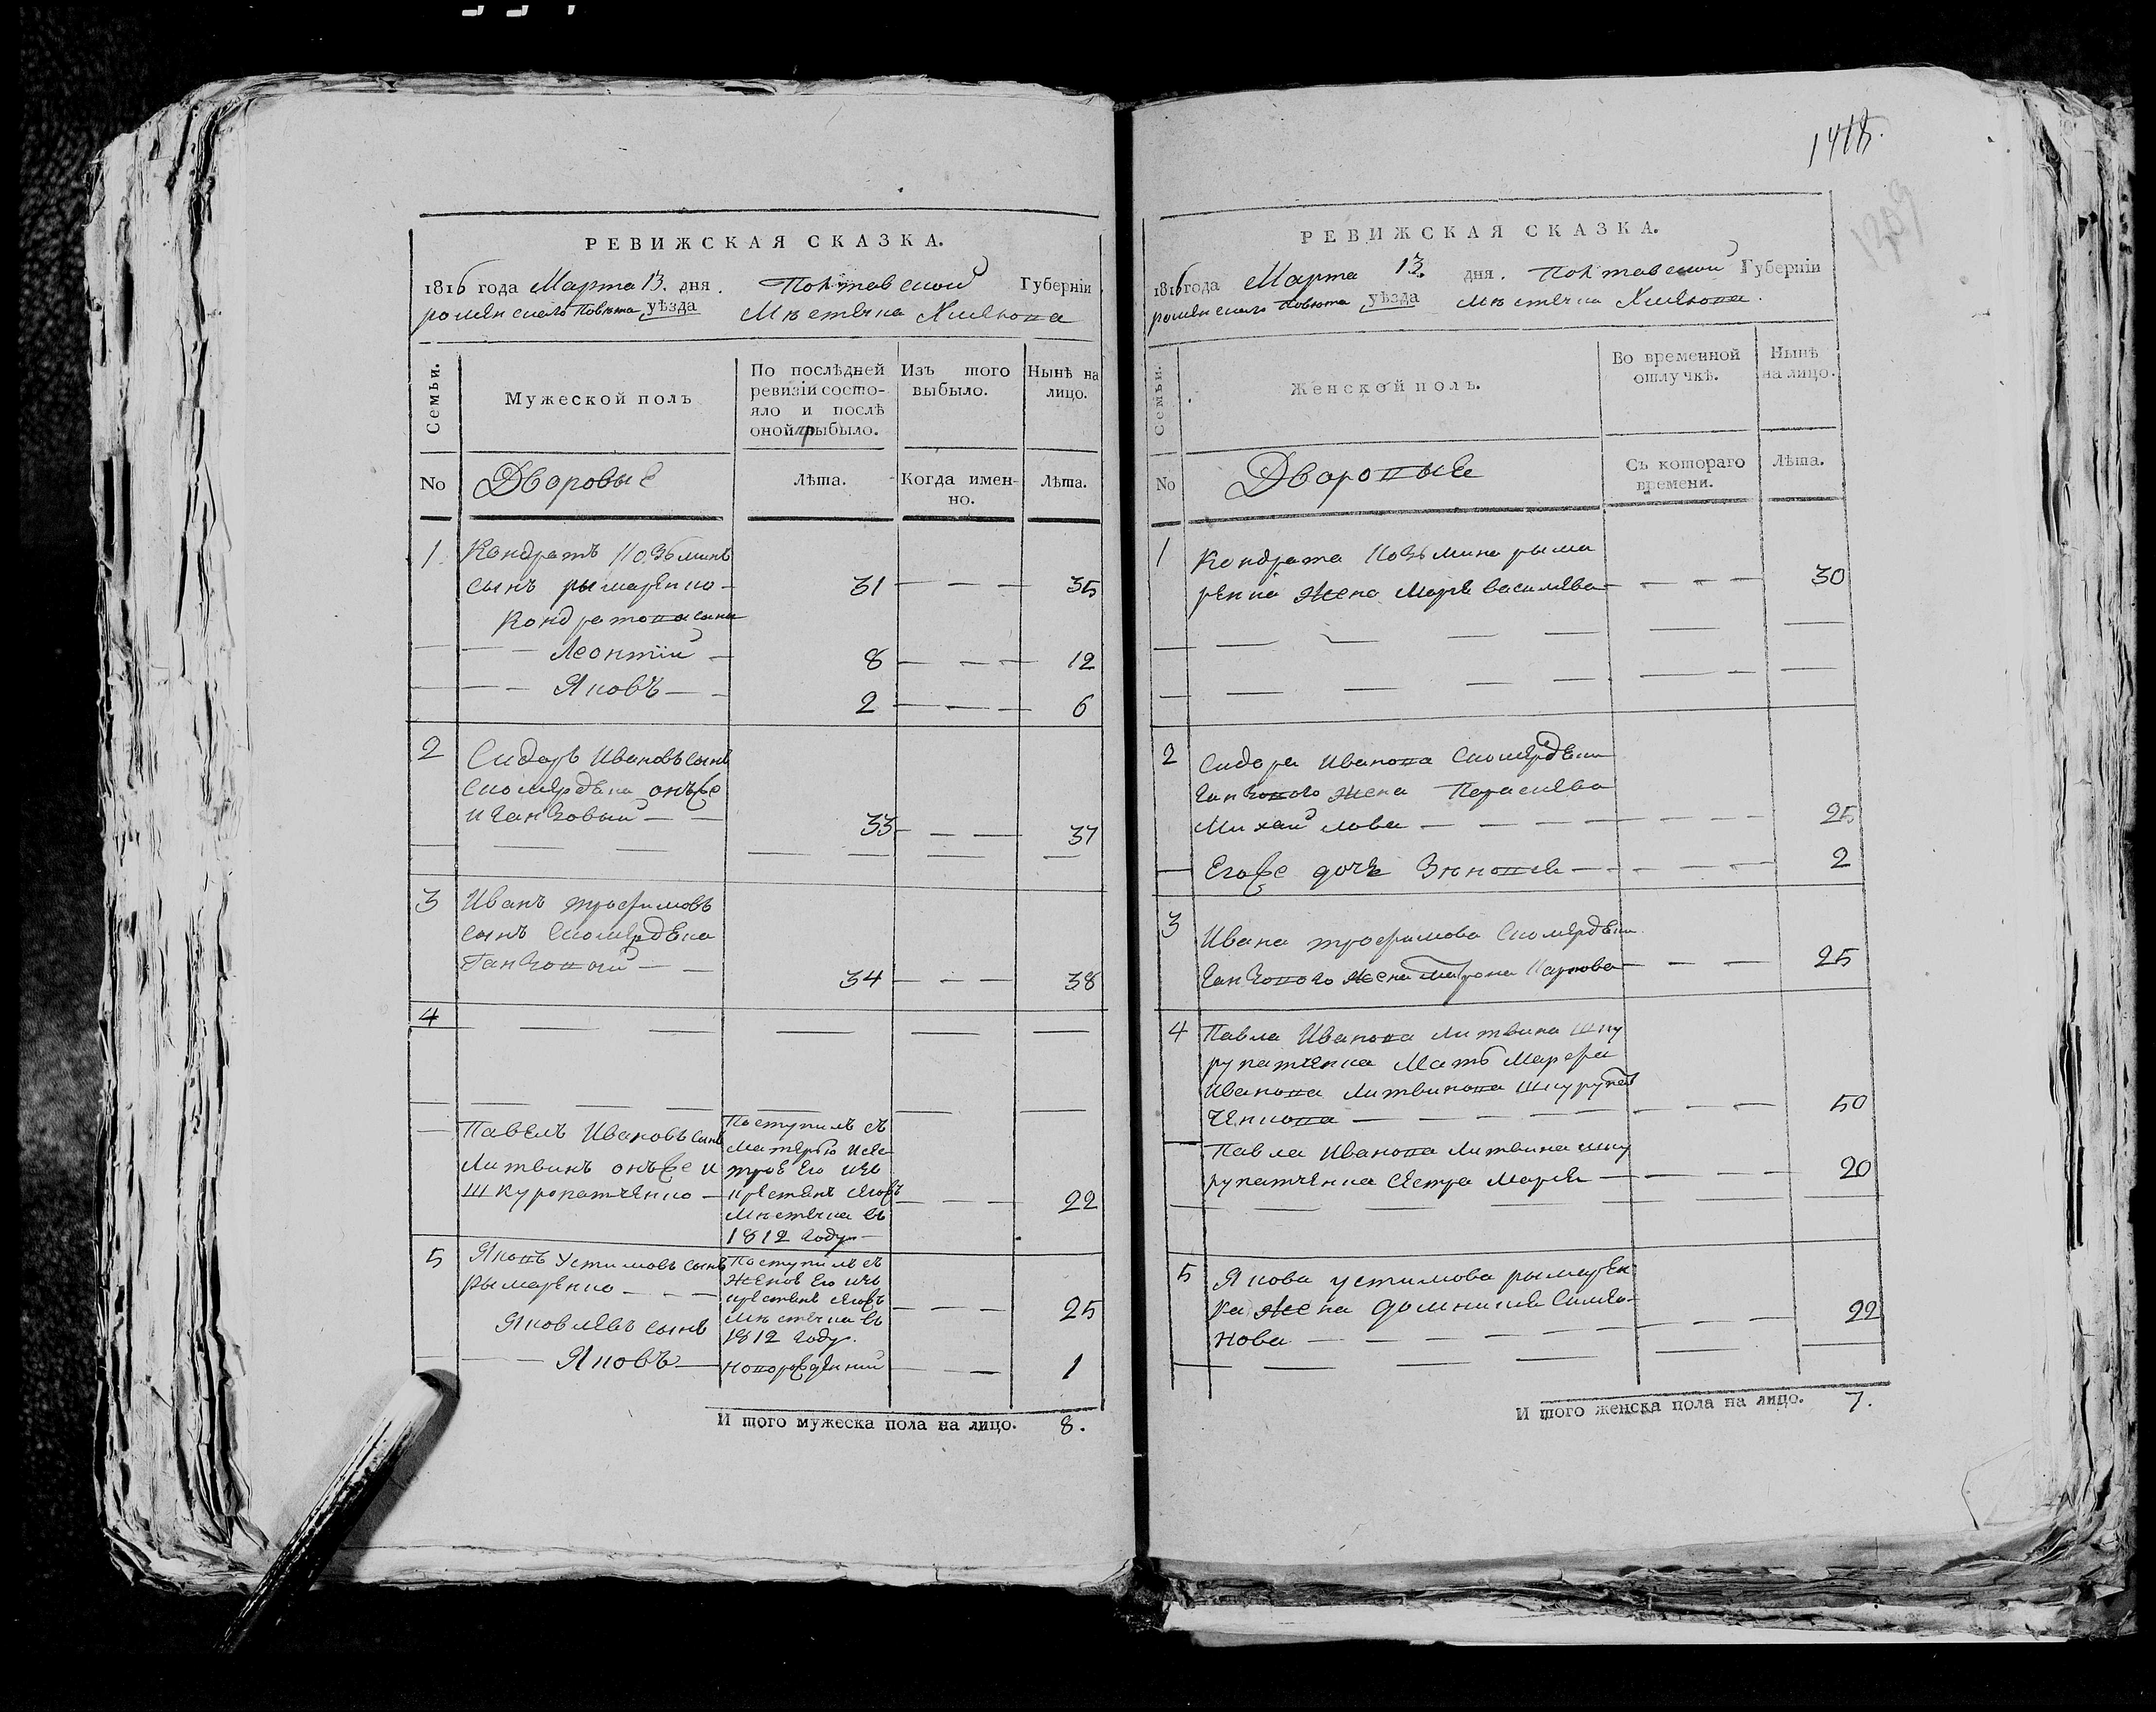 1418.
1309
РЕВИЖСКАЯ СКАЗКА.
1816 года Марта 13. дня. Полтавской Губерніи
роменского повѣта уѣзда Мѣстечка Хмелова
Семьи.
Мужеской полъ
По послѣдней ревизіи состо-
яло и послѣ
оной прибыло.
Изъ того
выбыло.
Нынѣ на
лицо.
No
Дворовые
Лѣта.
Когда имен-
но.
Лѣта.
1 Кондратъ Козьминъ
сынъ рымаренко 31 — — — 35
Кондратова сыны
— — Леонтій — 8 — — — 12
— — Яковъ — — 2 — — — 6
2 Сидоръ Ивановъ сынъ
Скомердека онъже
и Ганзовый — — 33 — — — 37
3 Иванъ трофимовъ
сынъ Скомердека
Ганзовой — — 34 — — — 38
4 — — — — — —
Павелъ Ивановъ сынъ
Литвинъ онъже и
Шкуропатченко — — — — 22
Поступилъ съ
матерью и сес
трой Его изъ
крестьянъ
Мѣстечка въ
1812 году —
5 Яковъ Устимовъ сынъ
Рымаренко — — — — — — 25
Поступилъ съ
Женой Его изъ
крестьянъ
Мѣстечка въ
1812 году.
Яковлевъ сынъ
— — Яковъ — новорожденний — — — 1
И того мужеска пола на лицо. 8.
РЕВИЖСКАЯ СКАЗКА.
1816 года Марта 13. дня. Полтавской Губерніи
роменского повѣта уѣзда Мѣстечка Хмелова.
Семьи.
Женской полъ.
Во временной
отлучкѣ.
Нынѣ
на лицо.
No
Дворовые
Съ котораго
времени.
Лѣта.
1 Кондрата Козьмина рыма
ренка Жена Марья василева — — — — 30
2 Сидора Иванова Скомердеки
Ганзового Жена Параскева
Михайлова — — — — 25
— Егоже дочь Зѣновія — — — — 2
3 Ивана трофимова Скомердеки
Ганзового Жена Матрона Карпова — — — 25
4 Павла Иванова Литвина Шку
рупатченка Мать Марфа
Иванова Литвинова Шкурупат
ченкова — — — — 50
— Павла Иванова Литвина шку
рупатченка Сестра Марья — — — — 20
5 Якова устимова рымарен
ка Жена домникия Симео-
нова — — — — 22
И того женска пола на лицо. 7.